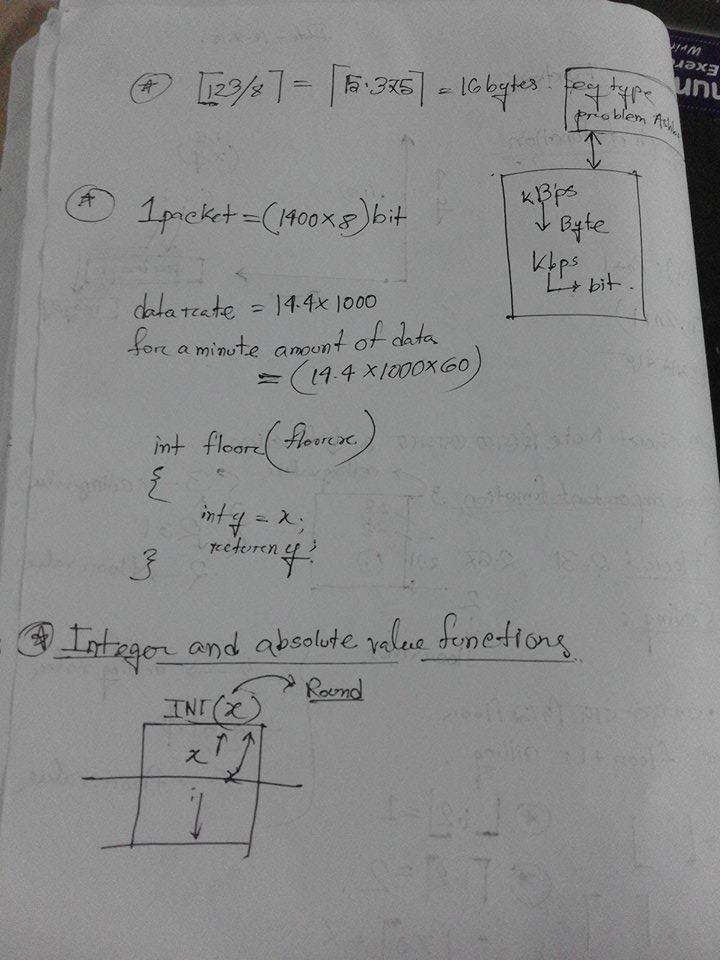 ⌈123/8⌉ = ⌈15.375⌉ = 16 bytes. eg type
problem
KBps
Byte
Kbps
bit.
1 packet = (1400×8) bit
data rate = 14.4×1000
for a minute amount of data
= (14.4×1000×60)
int floor(floor x)
{
int y = x;
return y;
}
Integer and absolute value functions.
INT(x) Round
x